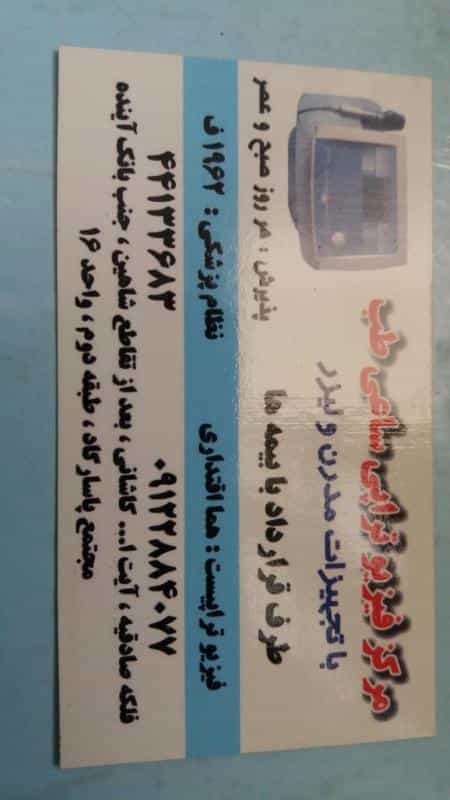 مرکز فیزیوتراپی ساعی طب
با تجهیزات مدرن و لیزر
طرف قرارداد با بیمه ها
پذیرش : هر روز صبح و عصر
فیزیوتراپیست : هما اقتداری نظام پزشکی : ۱۹۶۲ ف
۰۹۱۲۲۸۸۴۰۷۷ ۴۴۱۳۳۶۸۳
فلکه صادقیه ، آیت ا... کاشانی ، بعد از تقاطع شاهین ، جنب بانک آینده
مجتمع پاسارگاد ، طبقه دوم ، واحد ۱۶